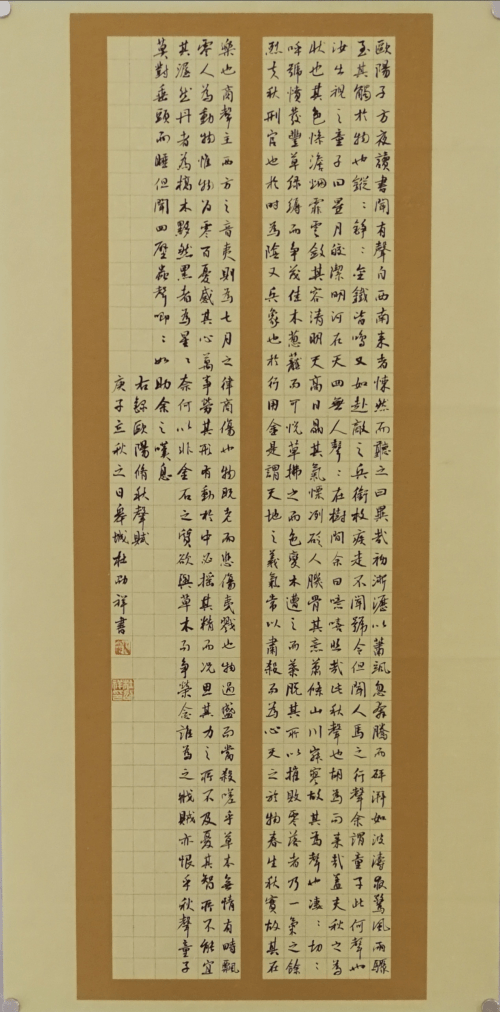 歐陽子方夜讀書聞有聲自西南來者悚然而聽之曰異哉初淅瀝以蕭颯忽奔騰而砰湃如波濤夜驚風雨驟
至其觸於物也鏦：錚：金鐵皆鳴又如赴敵之兵銜枚疾走不聞號令但聞人馬之行聲余謂童子此何聲也
汝出視之童子曰星月皎潔明河在天四無人聲：在樹間余曰噫嘻悲哉此秋聲也胡為而來哉蓋夫秋之為
狀也其色慘澹煙霏雲斂其容清明天高日晶其氣慄冽砭人肌骨其意蕭條山川寂寥故其為聲也淒：切：
呼號憤發豐草綠縟而爭茂佳木蔥蘢而可悅草拂之而色變木遭之而葉脫其所以摧敗零落者乃一氣之餘
烈夫秋刑官也於時為陰又兵象也於行用金是謂天地之義氣常以肅殺而為心天之於物春生秋實故其在
樂也商聲主西方之音夷則為七月之律商傷也物既老而悲傷夷戮也物過盛而當殺嗟乎草木無情有時飄
零人為動物惟物為靈百憂感其心萬事勞其形有動於中必搖其精而況思其力之所不及憂其智所不能宜
其渥然丹者為槁木黟然黑者為星：奈何以非金石之質欲與草木而爭榮念誰為之戕賊亦恨乎秋聲童子
莫對垂頭而睡但聞四壁蟲聲唧：如助余之嘆息
右錄歐陽脩秋聲賦
庚子立秋之日皋城杜祥書